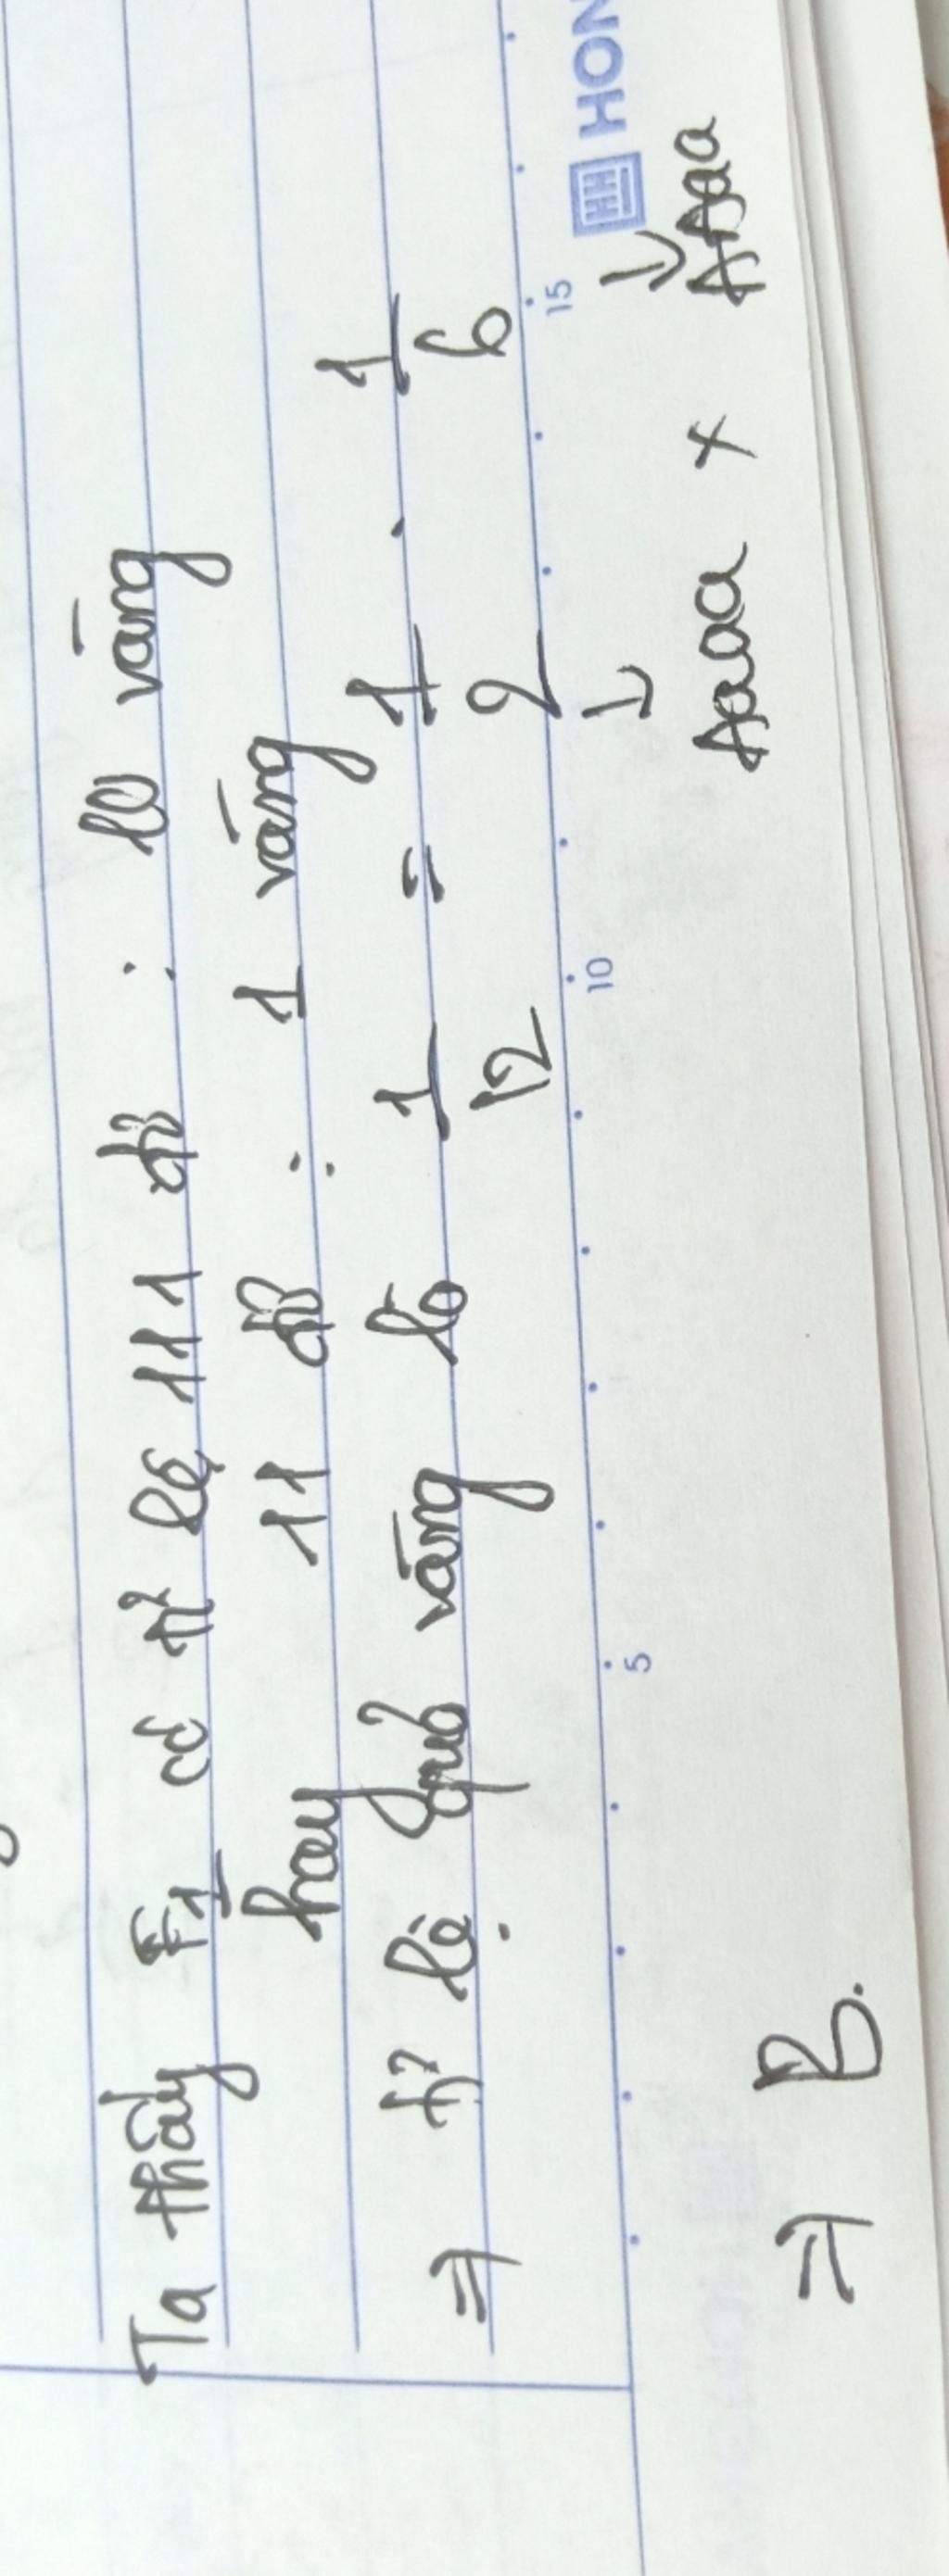 Ta thấy F1 có tỉ lệ 111 đỏ : 10 vàng
hay 11 đỏ : 1 vàng
=> tỉ lệ quả vàng là 1/12 = 1/2 . 1/6
5 10 15 HON
↓ ↓
=> B. Aaaa x AAaa